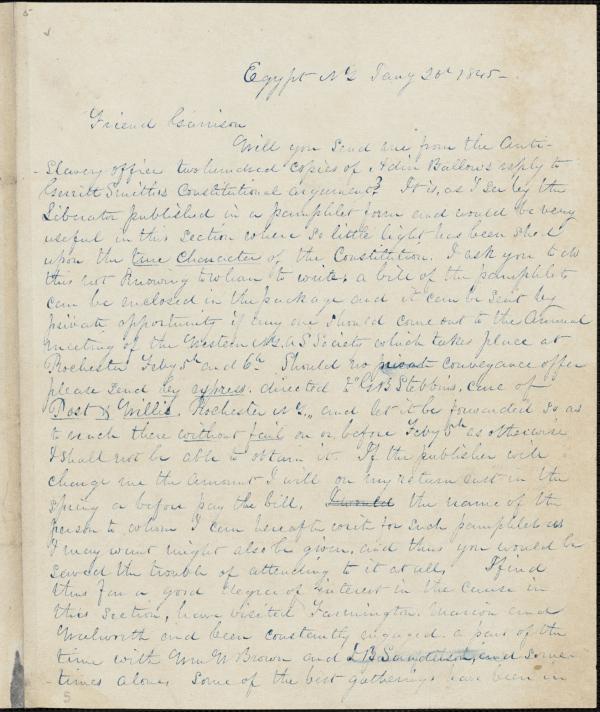 Egypt N.Y. Jany 20th 1845–
Friend Garrison
Will you send me from the Anti-
-Slavery office two hundred copies of Adin Ballows reply to
Gerritt Smiths Constitutional argument? It is, as I see by the
Liberator published in a pamphlet form and would be very
useful in this section where so little light has been shed
upon the true character of the Constitution. I ask you to do
this not knowing to whom to write; a bill of the pamphlets
can be enclosed in the package and it can be sent by
private opportunity if any one should come out to the Annual
meeting of the Western N.Y. A S Society which takes place at
Rochester Feby 5th and 6th. Should no private conveyance offer
please send by express. directed to G B Stebbins, care of
Post & Willis. Rochester N.Y. and let it be forwarded so as
to reach there without fail on or before Feby 5th as otherwise
I shall not be able to obtain it. If the publisher will
charge me the amount I will on my return east in the
spring or before pay the bill. the name of the
person to whom I can hereafter write for such pamphlets as
I may want might also be given, and thus you would be
saved the trouble of attending to it at all. I find
thus far a good degree of interest in the cause in
this section, have visited Farmington. Marion and
Walworth and been constantly engaged. a part of the
time with Wm W Brown and J B Sanderson, and some-
-times alone. Some of the best gatherings have been in
5